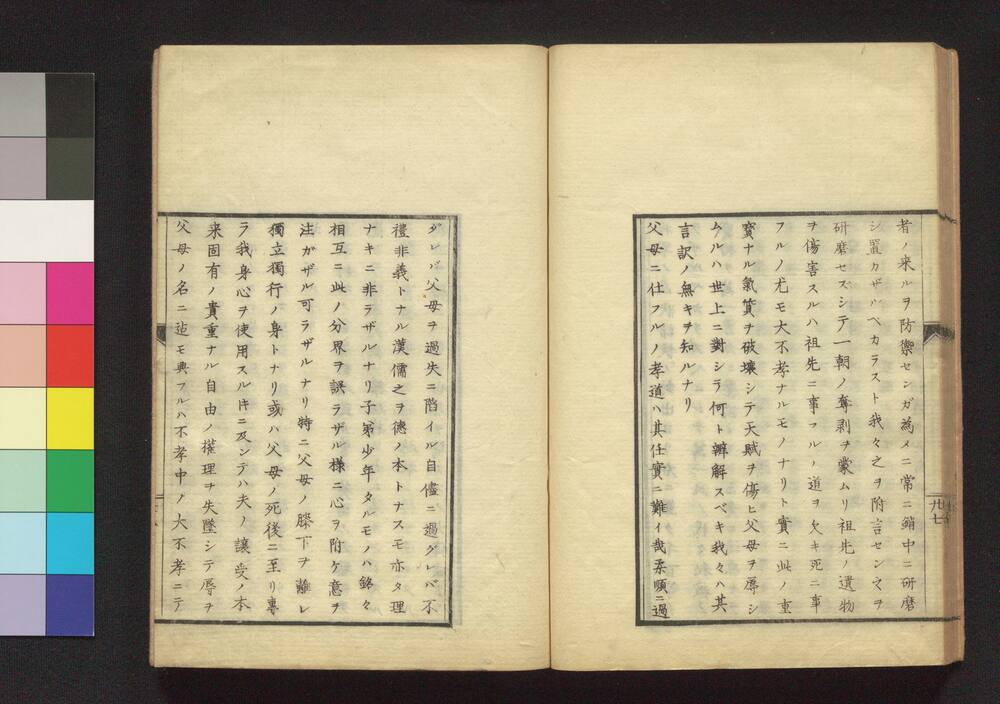 者ノ来ルヲ防禦センガ為メニ常ニ鞘中ニ研磨
シ置カザルベカラスト我々之ヲ附言センマヲ
研磨セズシテ一朝ノ奪剥ヲ蒙ムリ祖先ノ遺物
ヲ傷害スルハ祖先ニ事フルノ道ヲ欠キ死ニ事
フルノ尤モ大不孝ナルモノナリト實ニ此ノ重
寳ナル氣質ヲ破壊シテ天賦ヲ傷ヒ父母ヲ辱シ
ムルハ世上ニ對シテ何ト辨解スベキ我々ハ其
言訳ノ無キヲ知ルナリ
父母ニ仕フルノ孝道ハ其任實ニ難イ哉柔順ニ過
グレバ父母ヲ過失ニ陷イル自儘ニ過グレバ不
禮非義トナル漢儒之ヲ徳ノ本トナスモ亦タ理
ナキニ非ラザルナリ子弟少年タルモノハ銘々
相互ニ此ノ分界ヲ誤ラザル様ニ心ヲ附ケ意ヲ
注ガザル可ラザルナリ特ニ父母ノ膝下ヲ離レ
獨立獨行ノ身トナリ或ハ父母ノ死後ニ至リ專
ラ我身心ヲ使用スルキニ及ンテハ夫ノ讓受ノ本
来固有ノ貴重ナル自由ノ權理ヲ失墜シテ辱ヲ
父母ノ名ニ迠モ與フルハ不孝中ノ大不孝ニテ
廿七